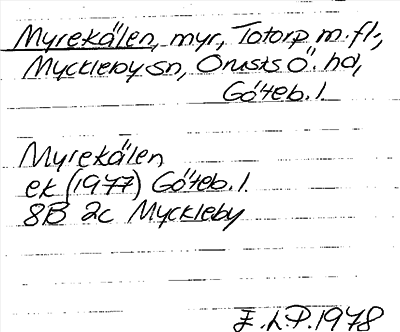 Myrekälen, myr, Totorp m.fl.,
Myckleby sn, Orusts Ö. hd,
Göteb. l.
Myrekälen
ek (1977) Göteb. l.
8B 2c Myckleby
E.L.P. 1978